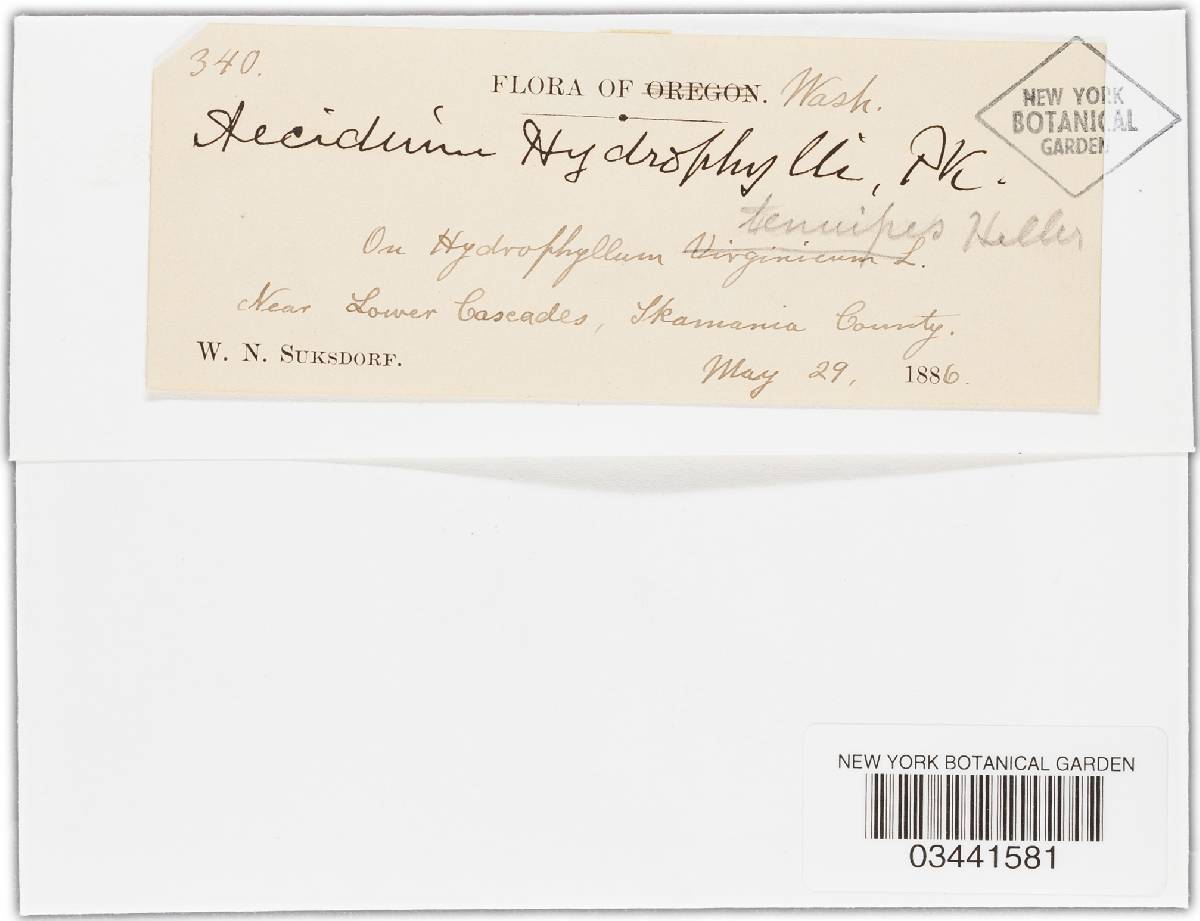 340.
FLORA OF OREGON. Wash.
Aecidium Hydrophylli, Pk.
tenuipes Heller
On Hydrophyllum Virginicum L.
Near Lower Cascades, Skamania County.
W. N. SUKSDORF.
May 29, 1886.
NEW YORK
BOTANICAL
GARDEN
NEW YORK BOTANICAL GARDEN
03441581